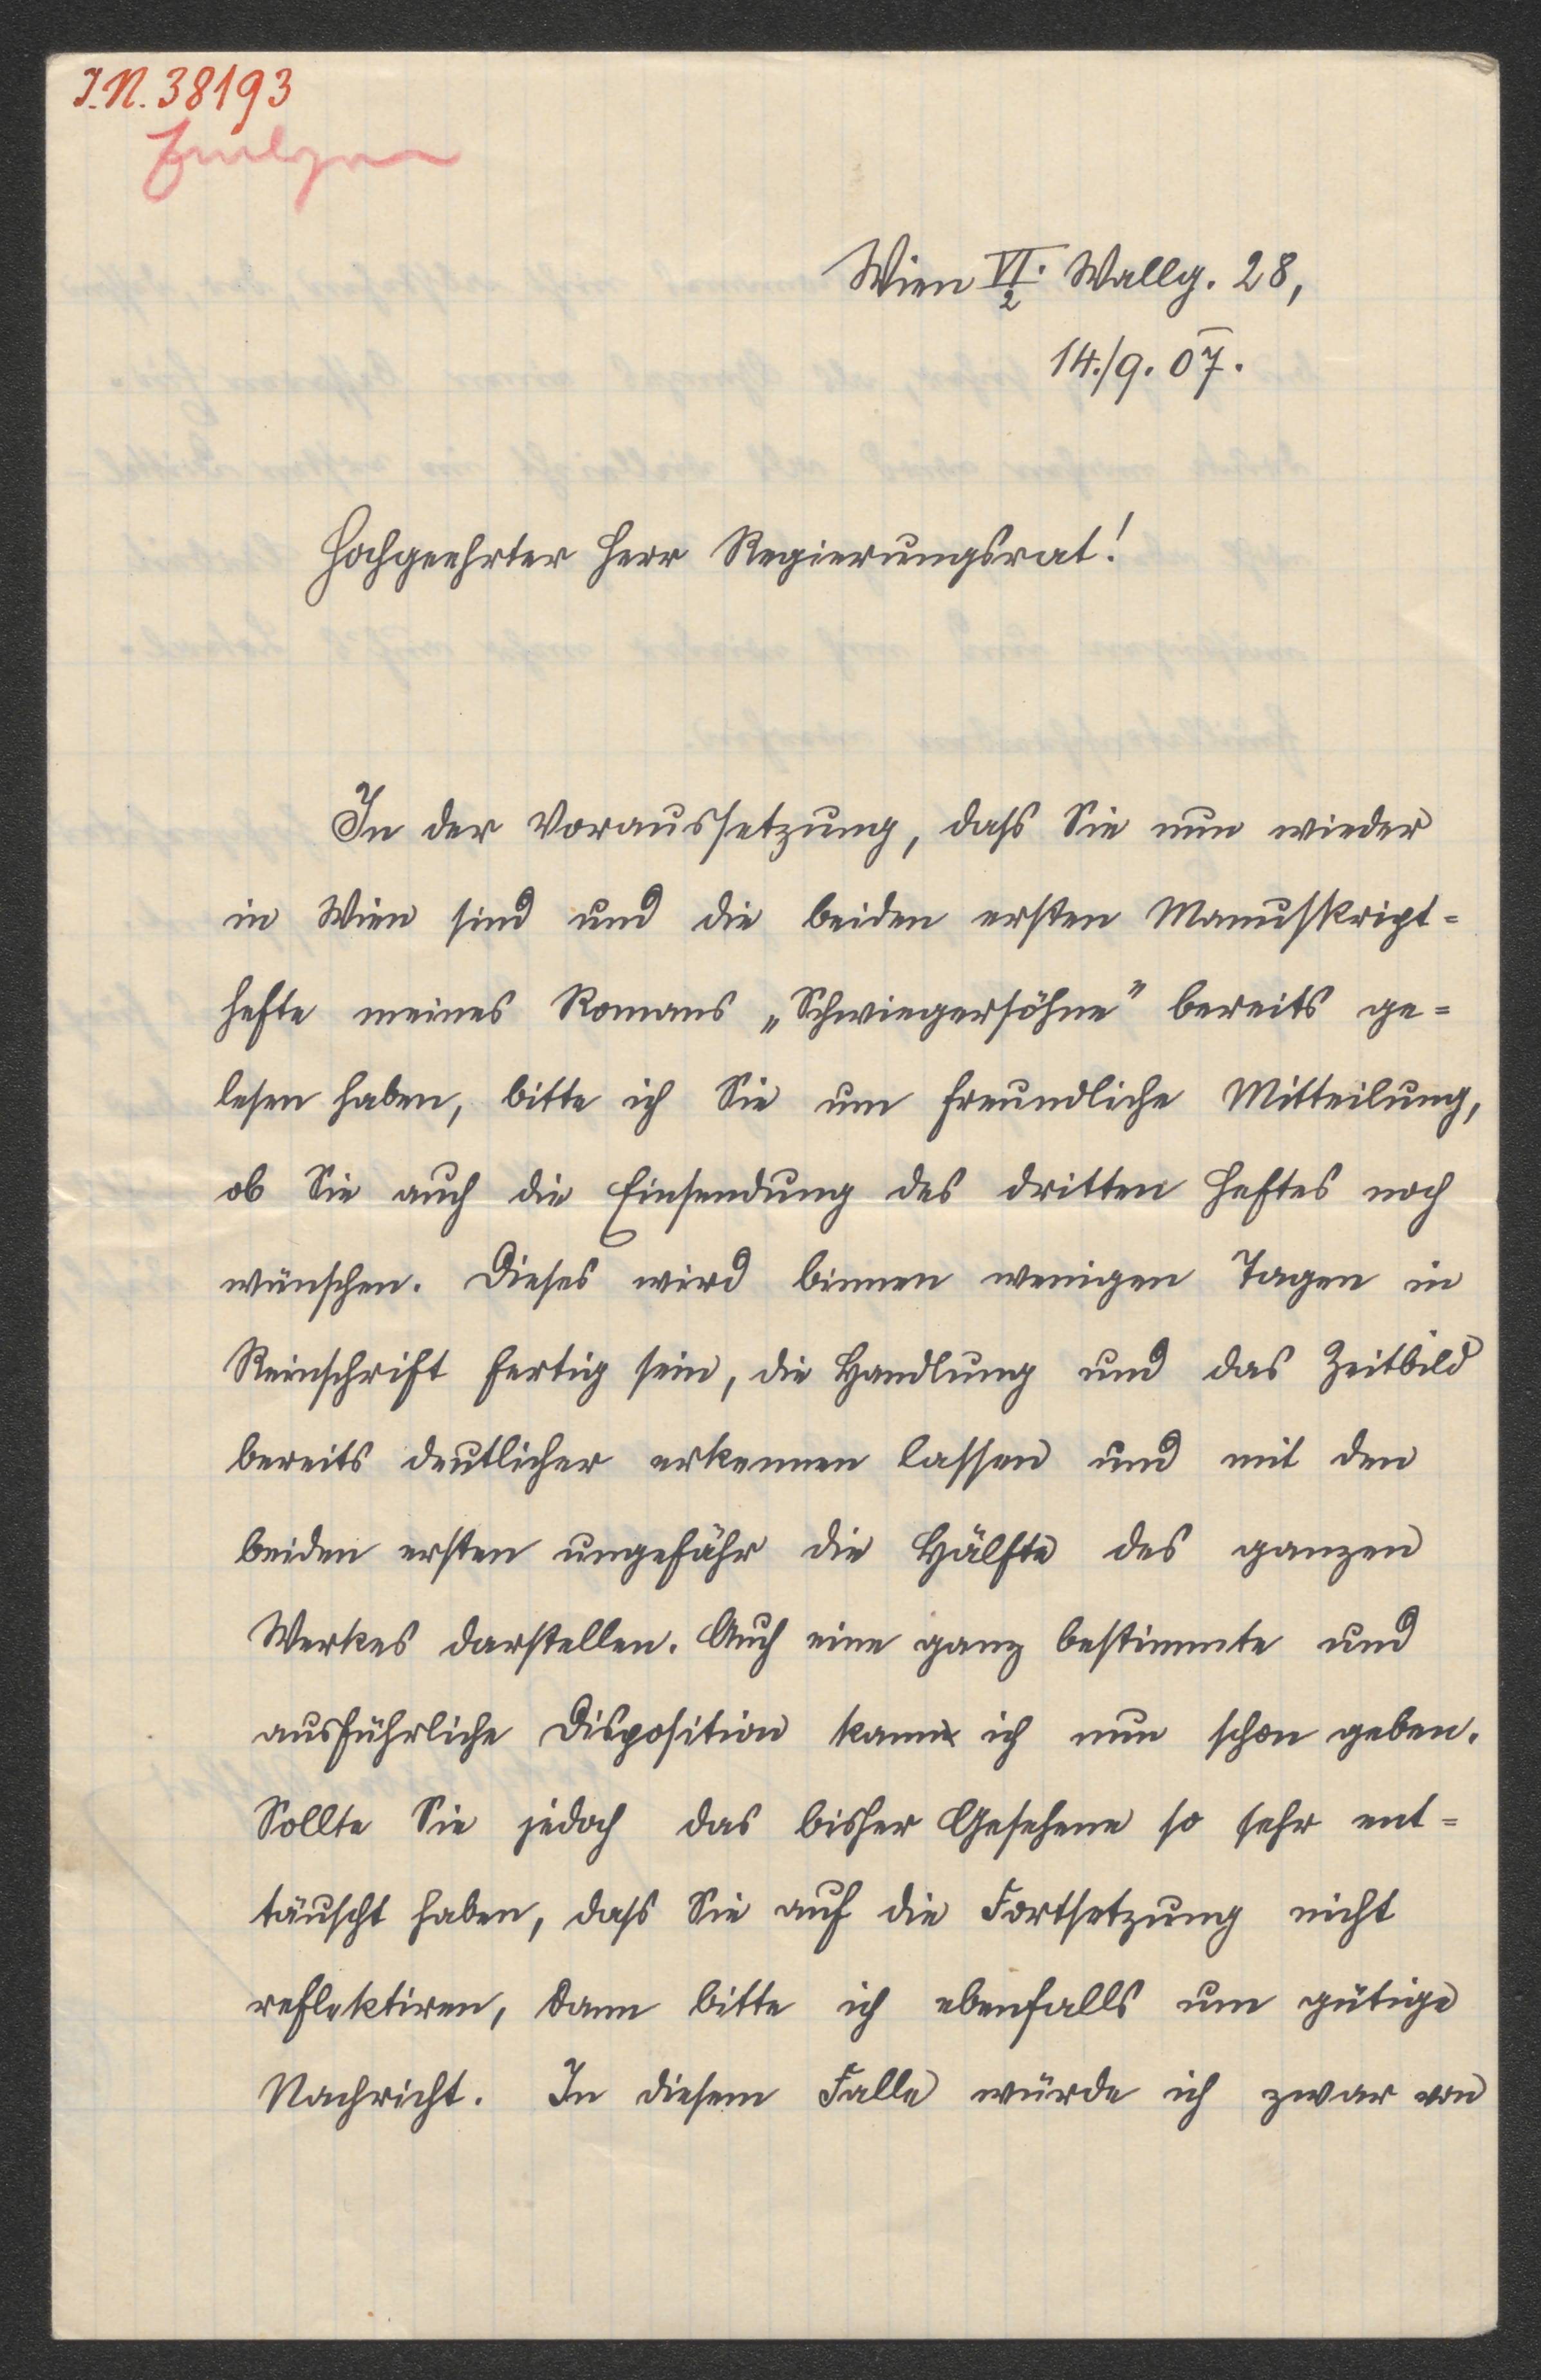 I.N. 38193
Wien VI./2 Wallg. 28,
14./9. 07.
Hochgeehrter Herr Regierungsrat!
In der Voraussetzung, dass Sie nun wieder
in Wien sind und die beiden ersten Manuskript=
hefte meines Romans „Schwiegersöhne" bereits ge=
lesen haben, bitte ich Sie um freundliche Mitteilung,
ob Sie auch die Einsendung des dritten Heftes noch
wünschen. Dieses wird binnen wenigen Tagen in
Reinschrift fertig sein, die Handlung und das Zeitbild
bereits deutlicher erkennen lassen und mit den
beiden ersten ungefähr die Hälfte des ganzen
Werkes darstellen. Auch eine ganz bestimmte und
ausführliche Disposition kann ich nun schon geben.
Sollte Sie jedoch das bisher Gesehene so sehr ent=
täuscht haben, dass Sie auf die Fortsetzung nicht
reflektiren, dann bitte ich ebenfalls um gütige
Nachricht. In diesem Falle würde ich zwar von